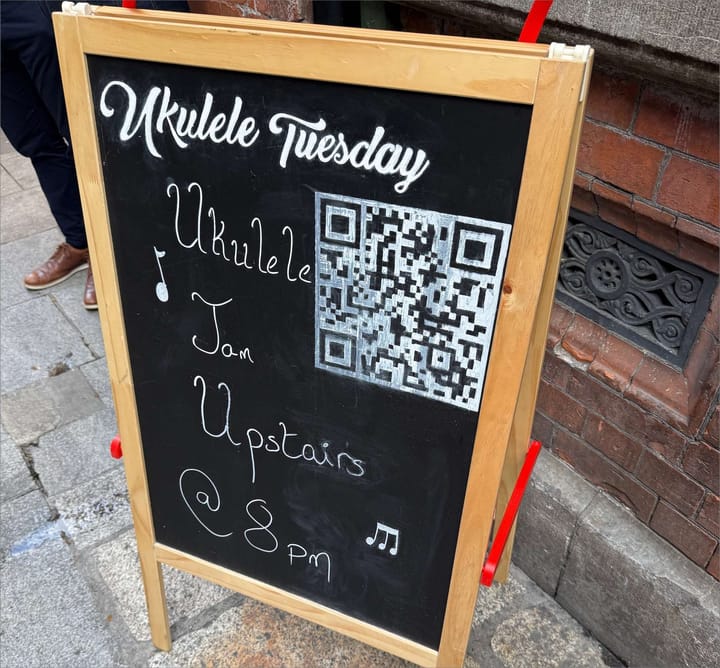 Ukulele Tuesday
Ukulele
Jam
Upstairs
@ 8pm